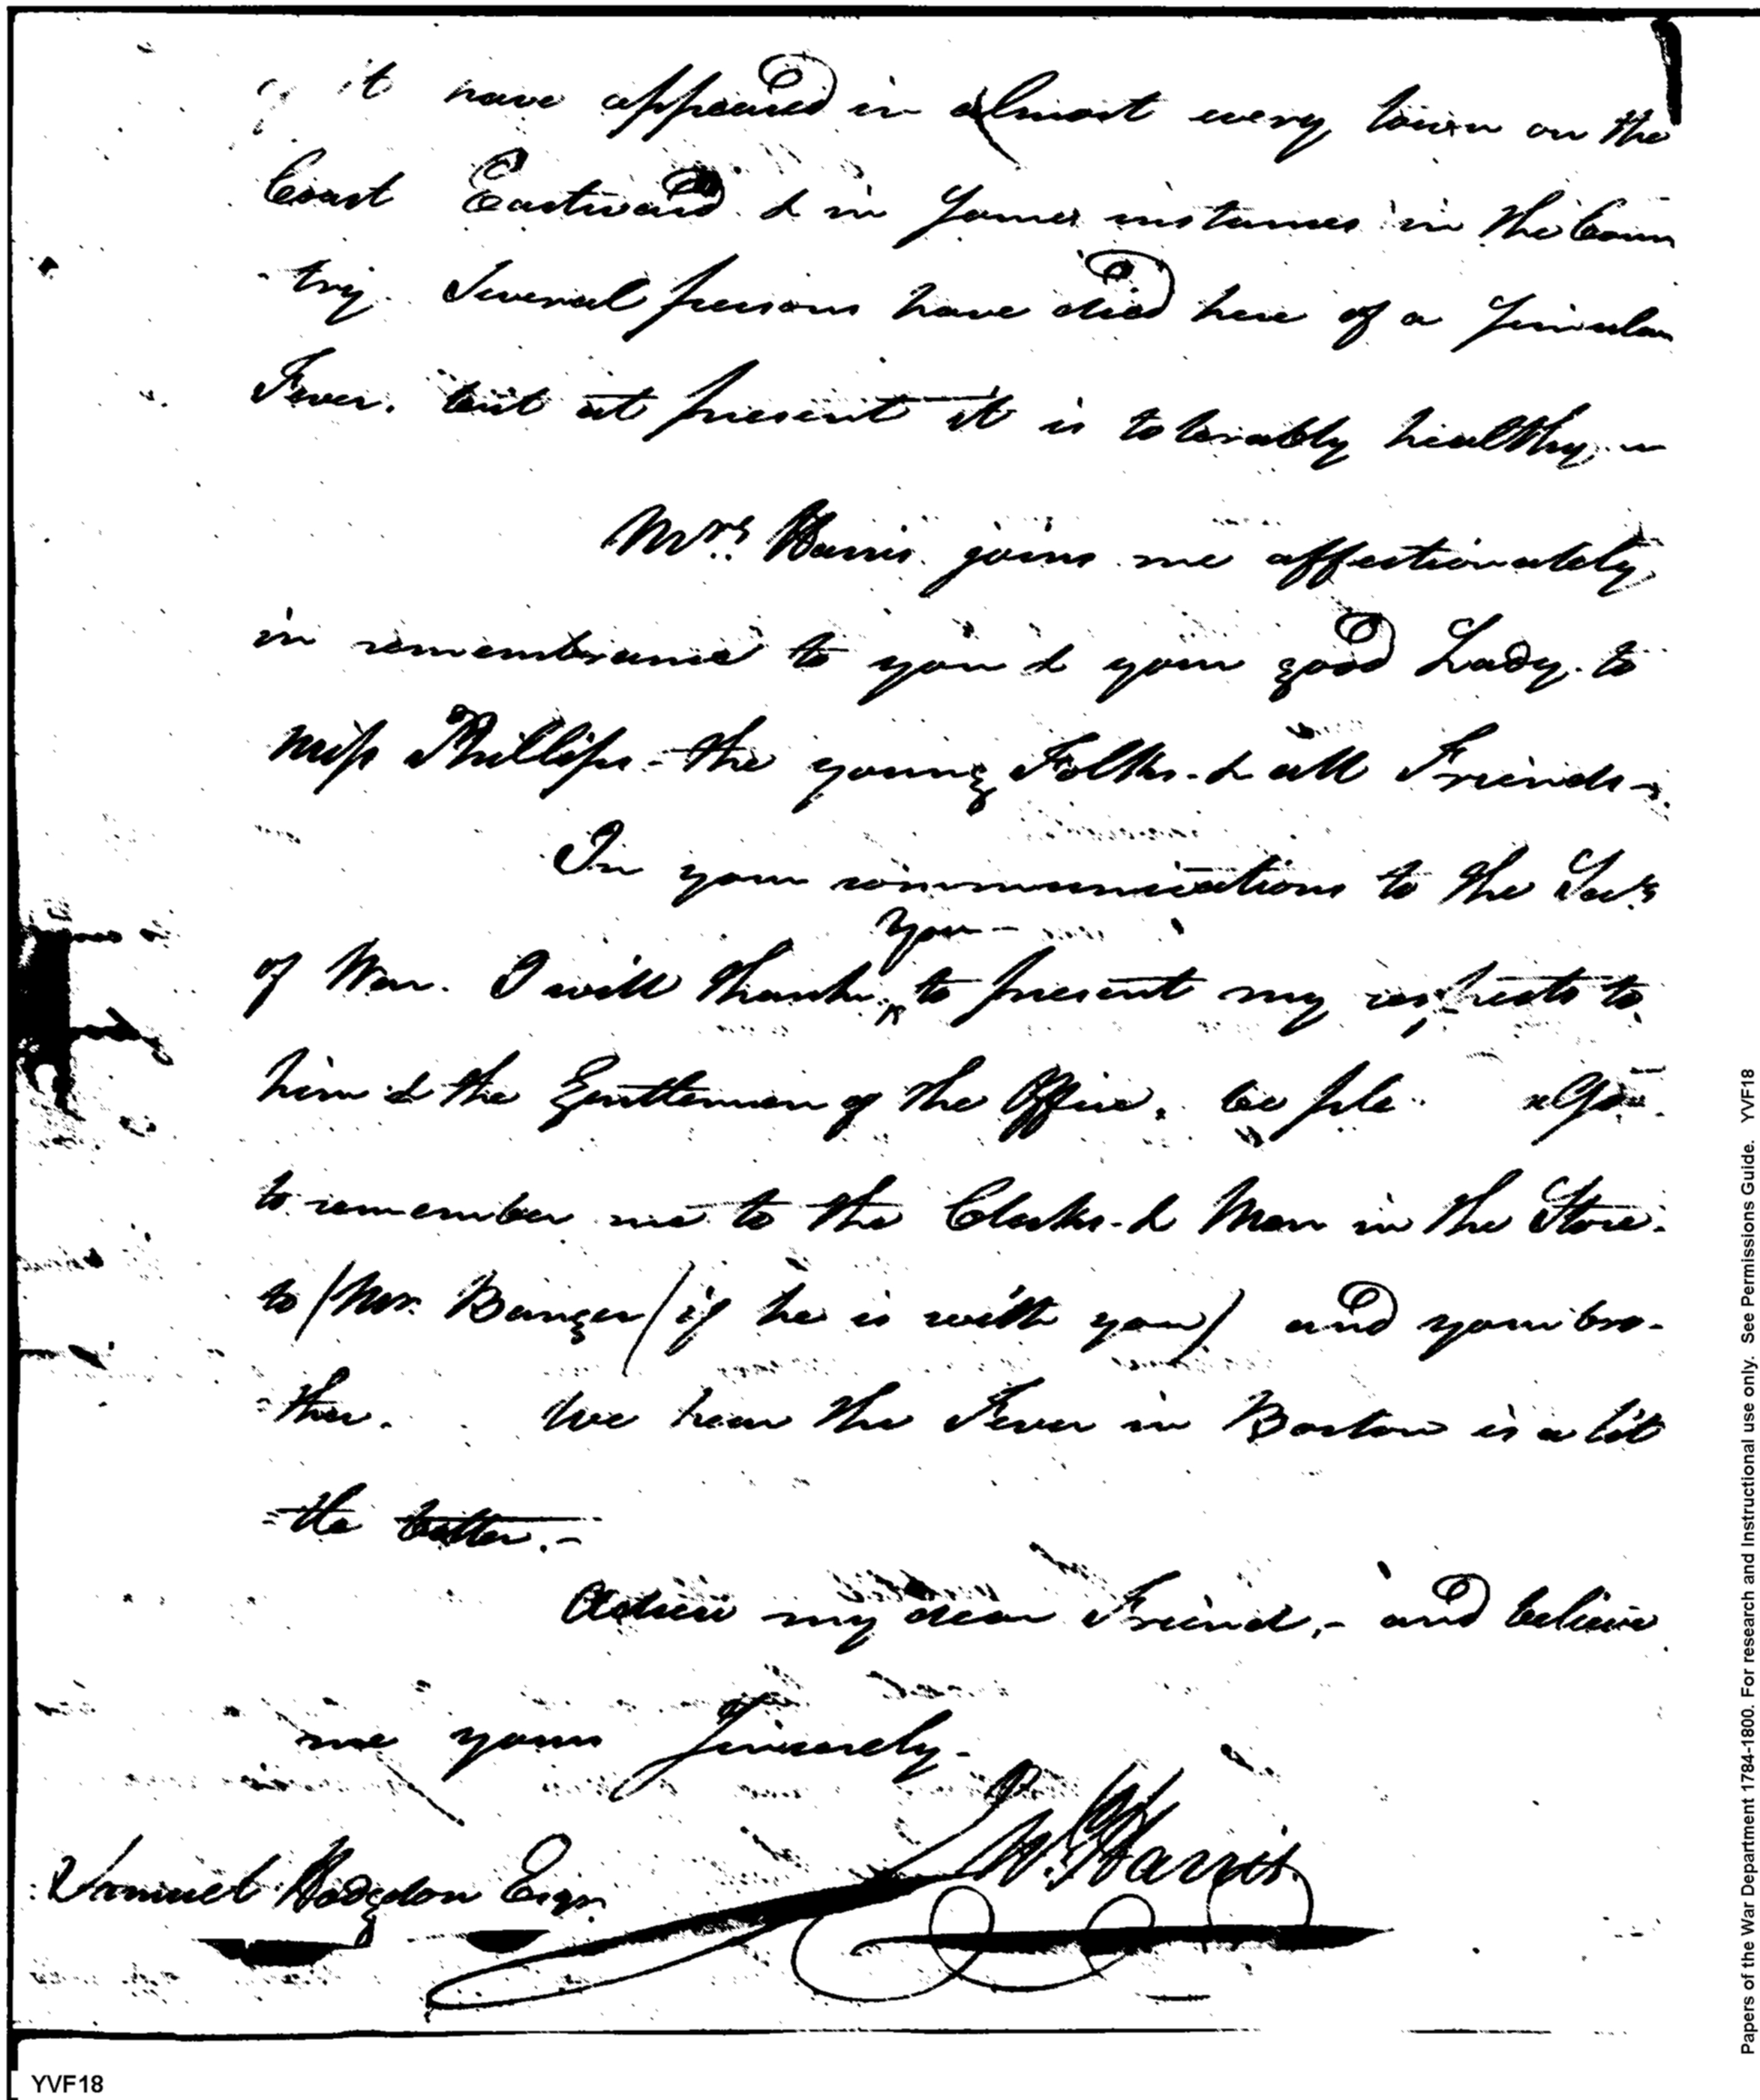 of it have appeared in almost every town on the
Coast Eastward & in some instances in the Coun
-try. Several persons have died here of a similar
Fever, but at present it is tolerably healthy
Mrs. Harris joins me affectionately
in remembrance to you & your good Lady. to
Miss Phillips - the young Folks - & all Friends -
In your communications to the Secy
you
of War. I will thank ^ to present my respects to
him & the Gentlemen of the Office, be ple also
to remember me to the Clerks - & Men in the Store.
to /Mr. Banger/ if he is with you) and your bro-
-ther. We hear the Fever in Boston is a lit
=tle better. -
Adieu my dear Friend, - and believe
me yours Sincerely -
Harris
Samuel Hodgdon Esqr.
YVF18
Papers of the War Department 1784-1800. For research and Instructional use only. See Permissions Guide. YVF18